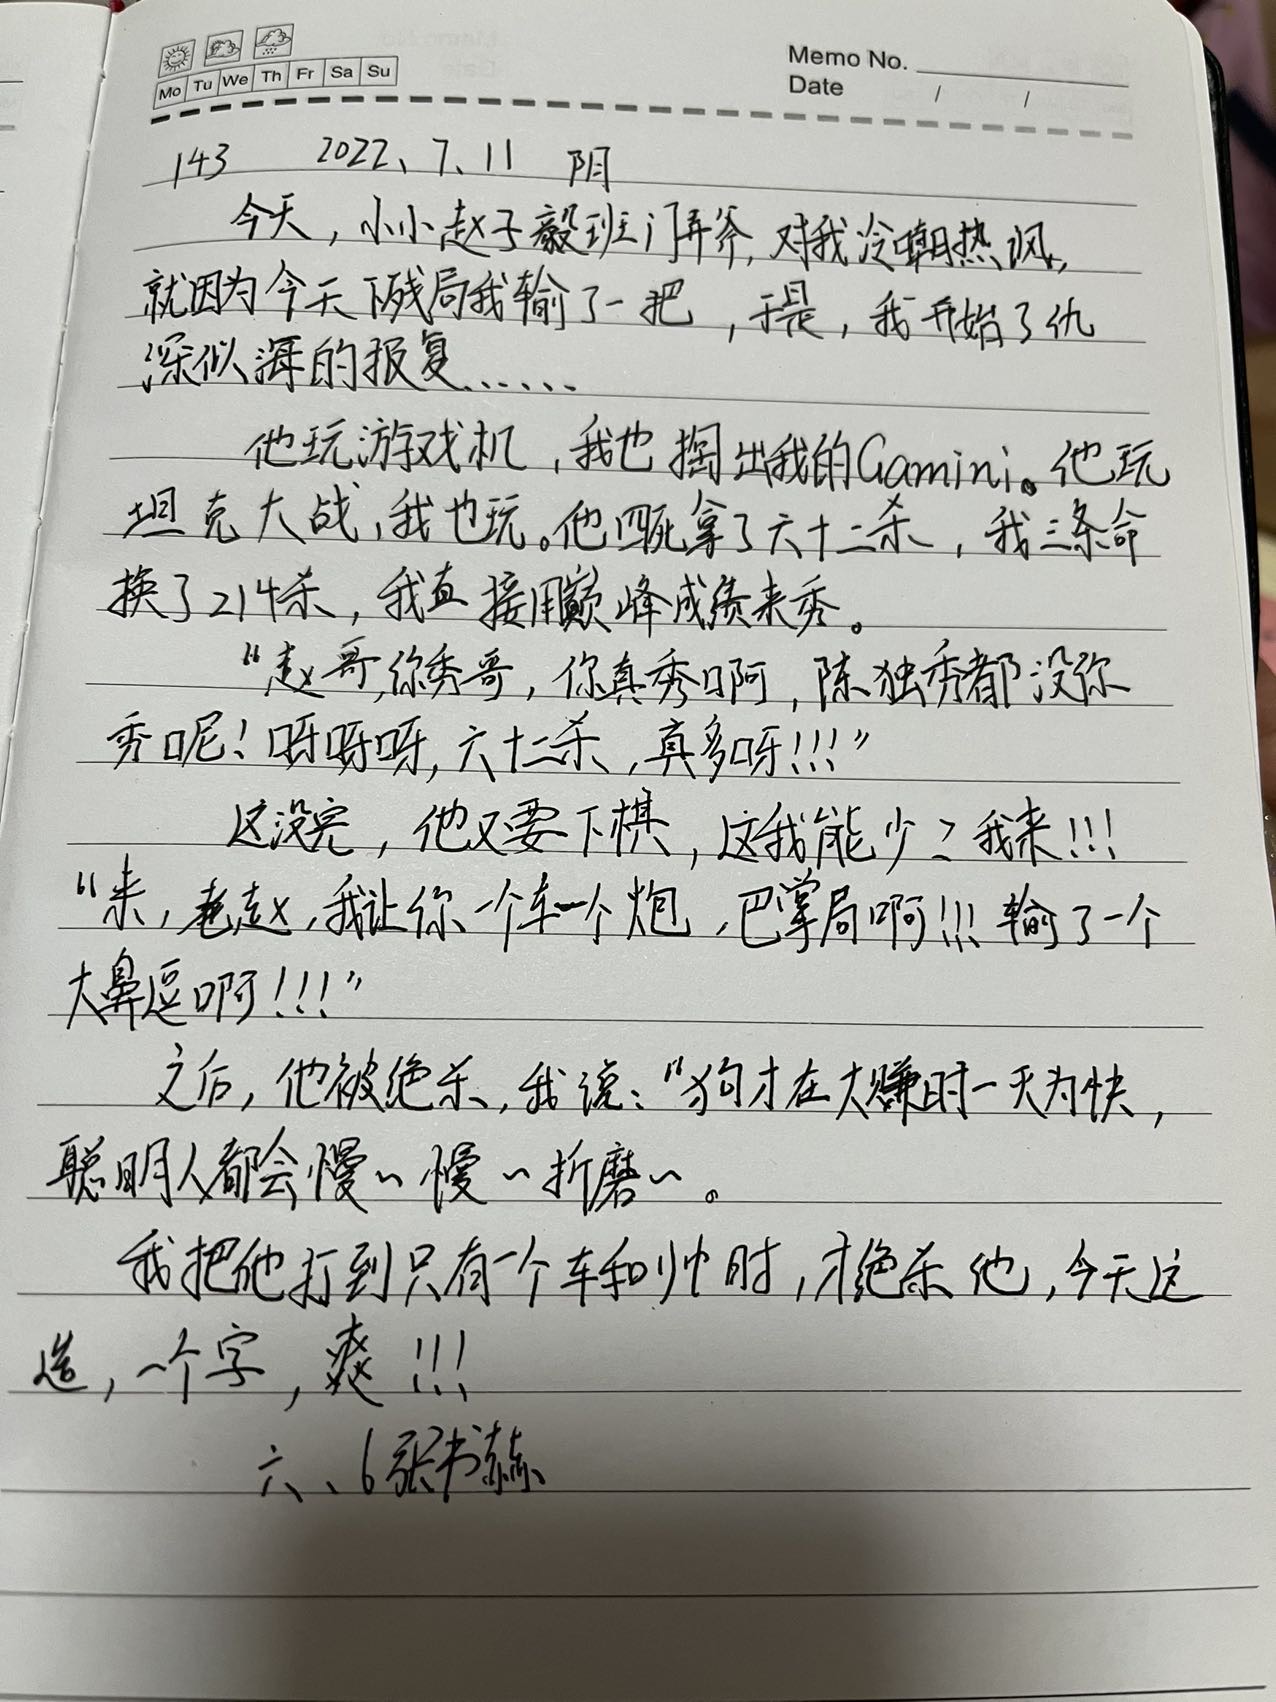 Mo Tu We Th Fr Sa Su
Memo No.
Date / /
143 2022、7、11 阴
今天，小小赵子毅班门弄斧，对我冷嘲热讽，
就因为今天下残局我输了一把，于是，我开始了仇
深似海的报复......
他玩游戏机，我也掏出我的Gamini。他玩
坦克大战，我也玩。他四死拿了六十二杀，我三条命
换了214杀，我直接用巅峰成绩来秀。
“赵哥，你秀哥，你真秀啊，陈独秀都没你
秀呢！呀呀呀，六十二杀，真多呀！！！”
这没完，他又要下棋，这我能少？我来！！！
“来，老赵，我让你一个车一个炮，巴掌局啊！！！输了一个
大鼻逗啊！！！”
之后，他被绝杀，我说：“狗才在大赚时一天为快，
聪明人都会慢~慢~折磨~。
我把他打到只有一个车和帅时，才绝杀他，今天这
道，一个字，爽！！！
六、6张书